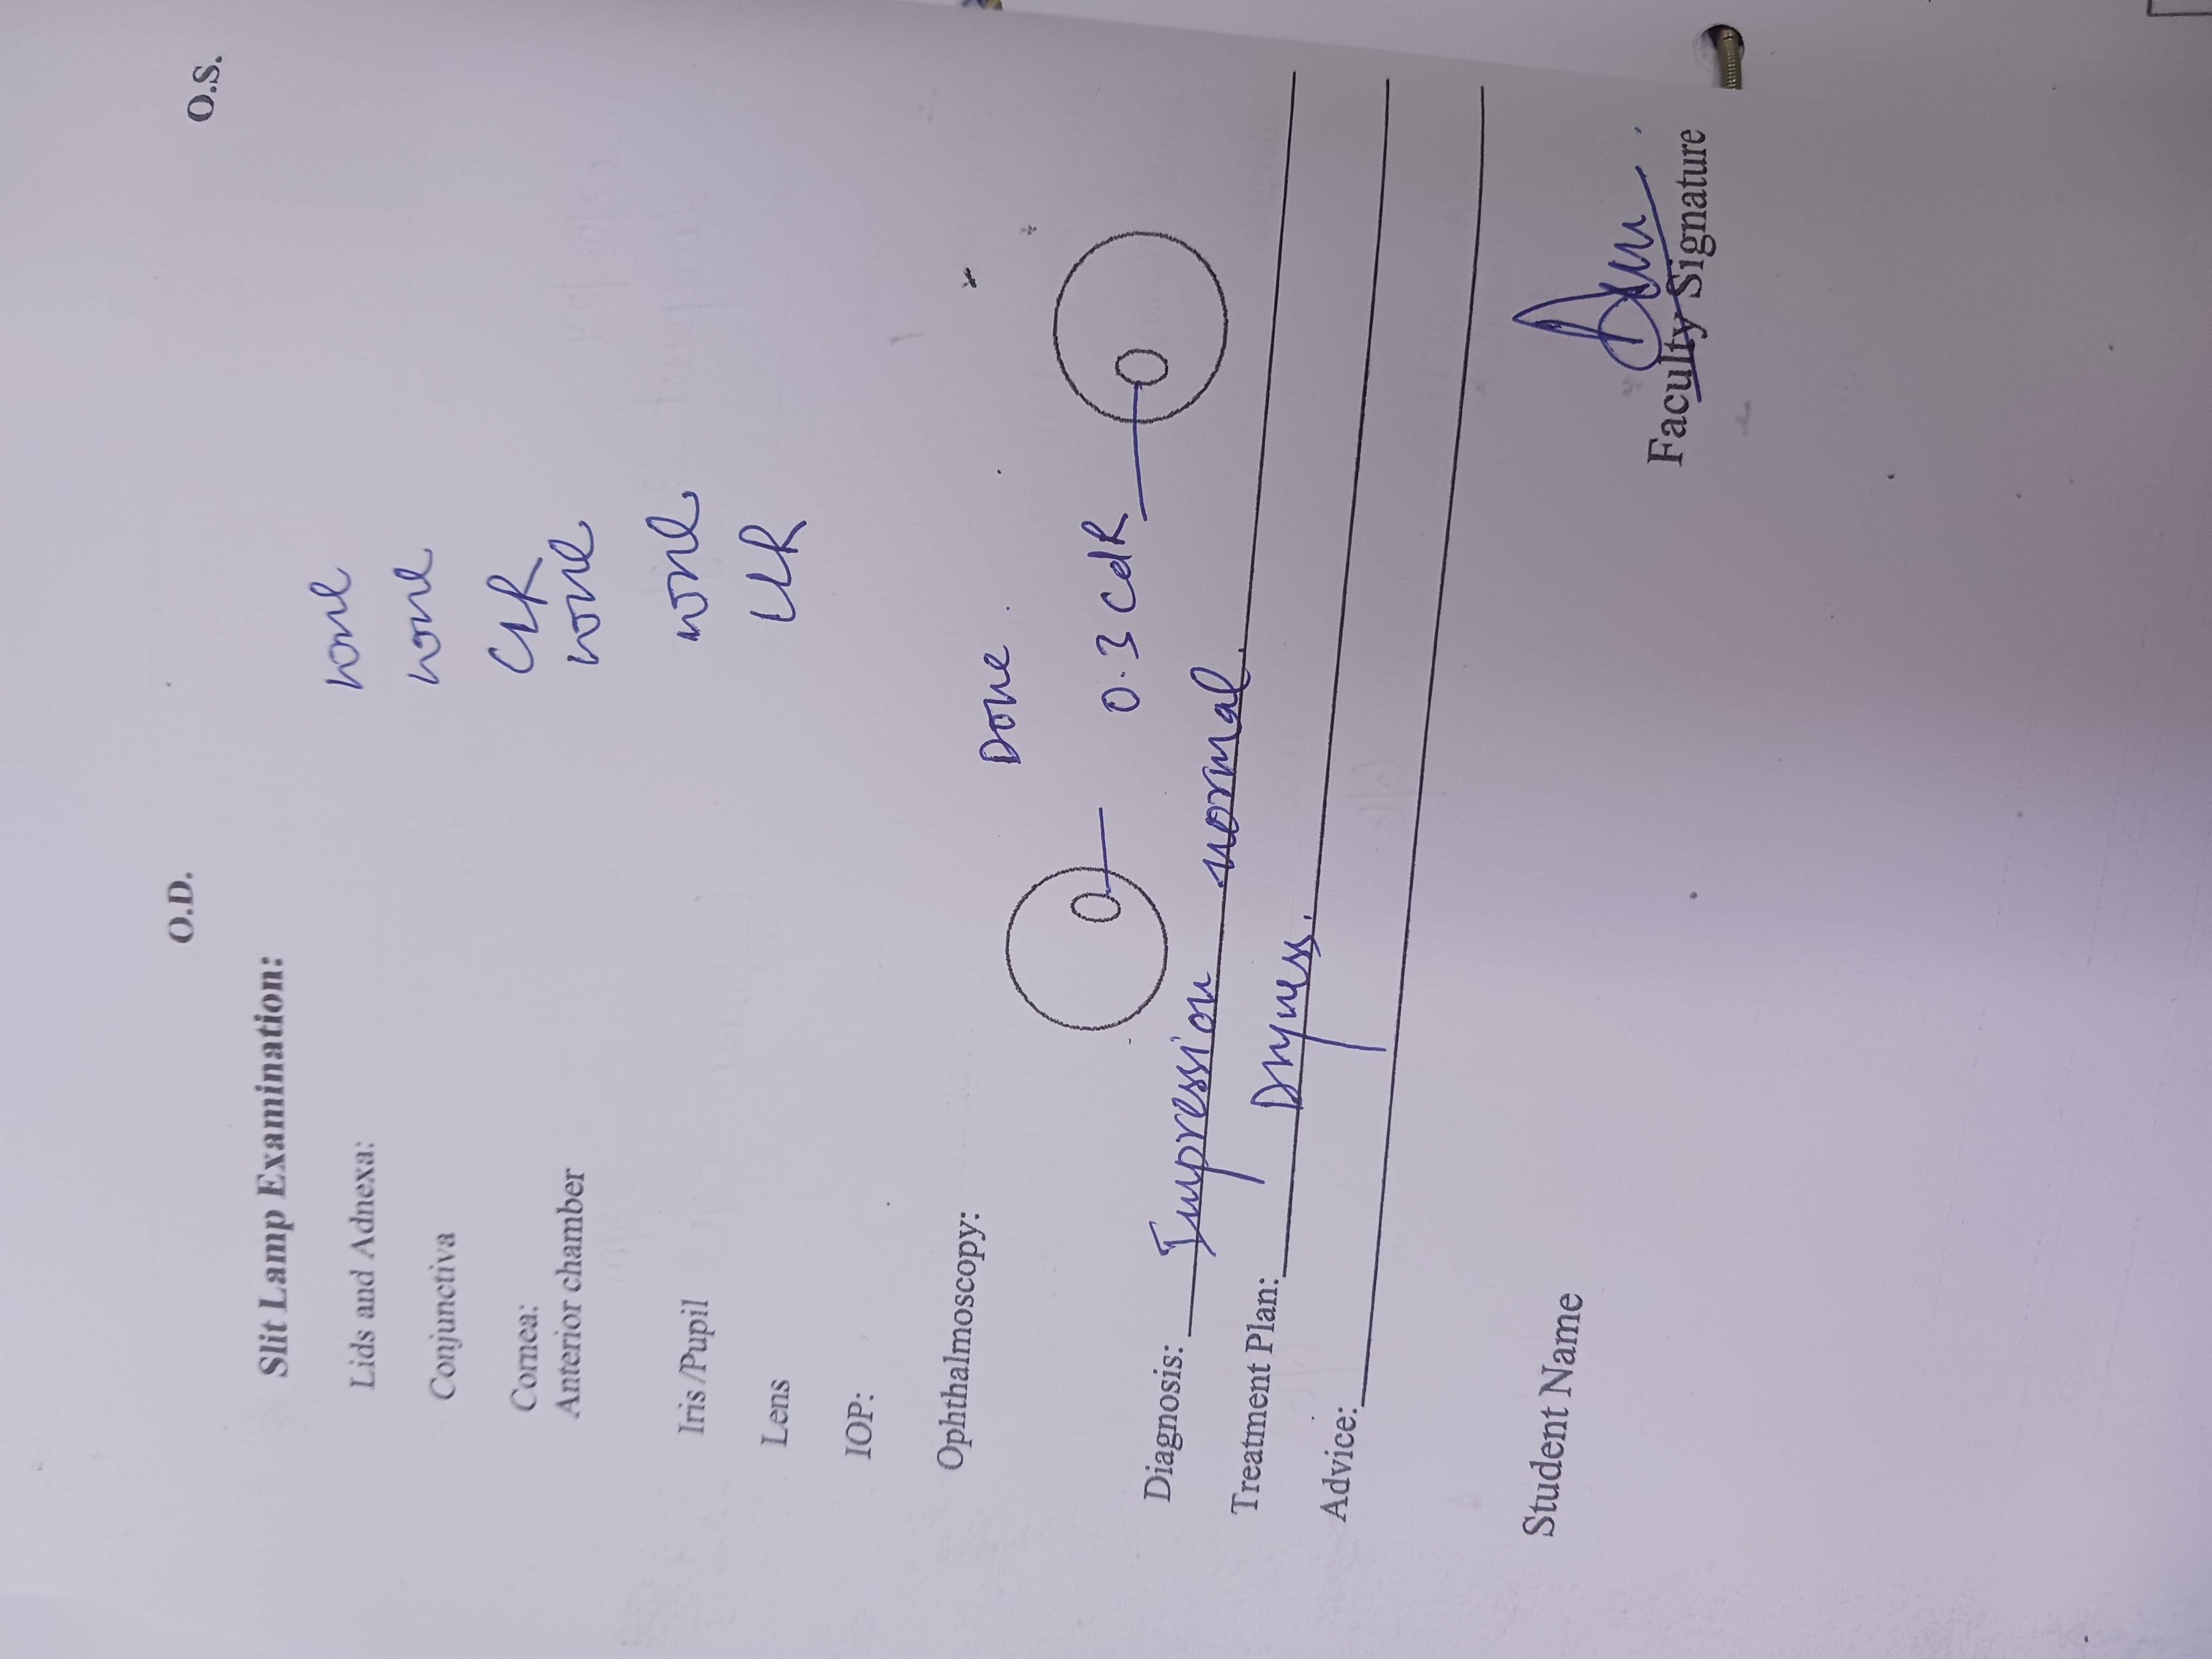 O.D. O.S.
Slit Lamp Examination:
Lids and Adnexa: none
Conjunctiva none
Cornea: CLR
Anterior chamber none
Iris /Pupil none
Lens CLR
IOP:
Ophthalmoscopy: Done.
0.3 CdR
Diagnosis: Impression normal.
Treatment Plan: Dryness.
Advice:
Student Name
Faculty Signature